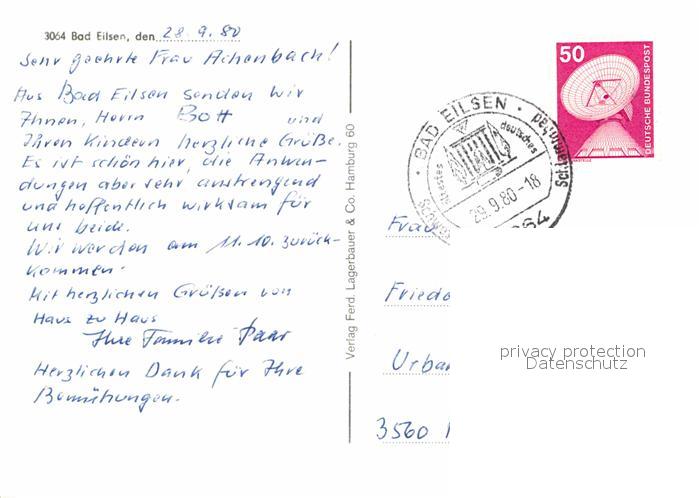 3064 Bad Eilsen, den 28.9.80
Sehr geehrte Frau Achenbach!
Aus Bad Eilsen senden wir
Ihnen, Herrn Bott und
Ihren Kindern herzliche Grüße.
Es ist schön hier, die Anwen-
dungen aber sehr anstrengend
und hoffentlich wirksam für
uns beide.
Wir werden am 11.10. zurück-
kommen.
Mit herzlichen Grüßen von
Haus zu Haus
Ihre Familie Paar
Herzlichen Dank für Ihre
Bemühungen.
Verlag Ferd. Lagerbauer & Co. Hamburg 60
50
DEUTSCHE BUNDESPOST
BAD EILSEN
deutsches
29.9.80-18
Frau
Friedo
Urba
3560
privacy protection
Datenschutz